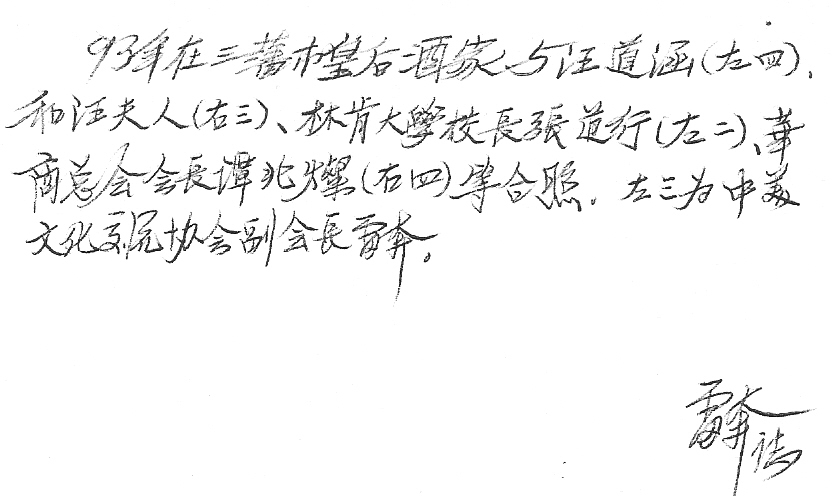 93年在三藩市皇后酒家与汪道涵(左四),
和汪夫人(右三)、林肯大學校長張道行(左二)、華
商总会会長譚兆燦(右四)等合照. 左三为中美
文化交流协会副会長雷奔。
雷奔